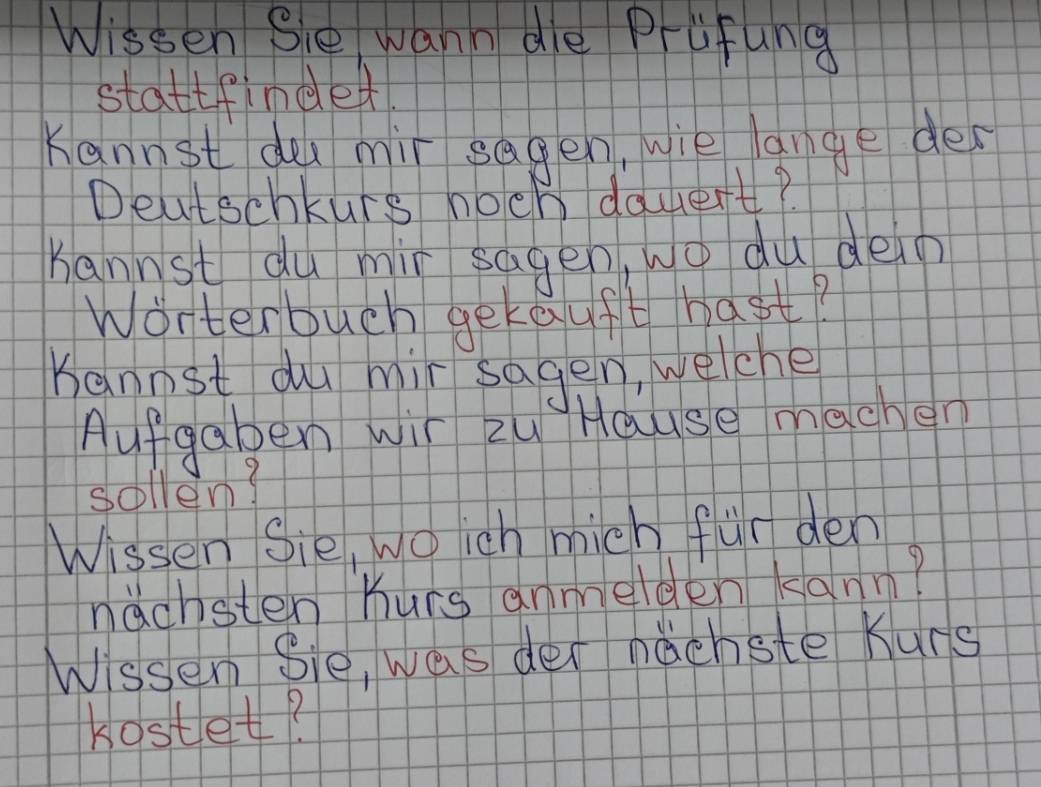 Wissen Sie, wann die Prüfung
stattfindet.
Kannst du mir sagen, wie lange der
Deutschkurs noch dauert?
Kannst du mir sagen, wo du dein
Wörterbuch gekauft hast?
Kannst du mir sagen, welche
Aufgaben wir zu Hause machen
sollen?
Wissen Sie, wo ich mich für den
nächsten Kurs anmelden kann?
Wissen Sie, was der nächste Kurs
kostet?